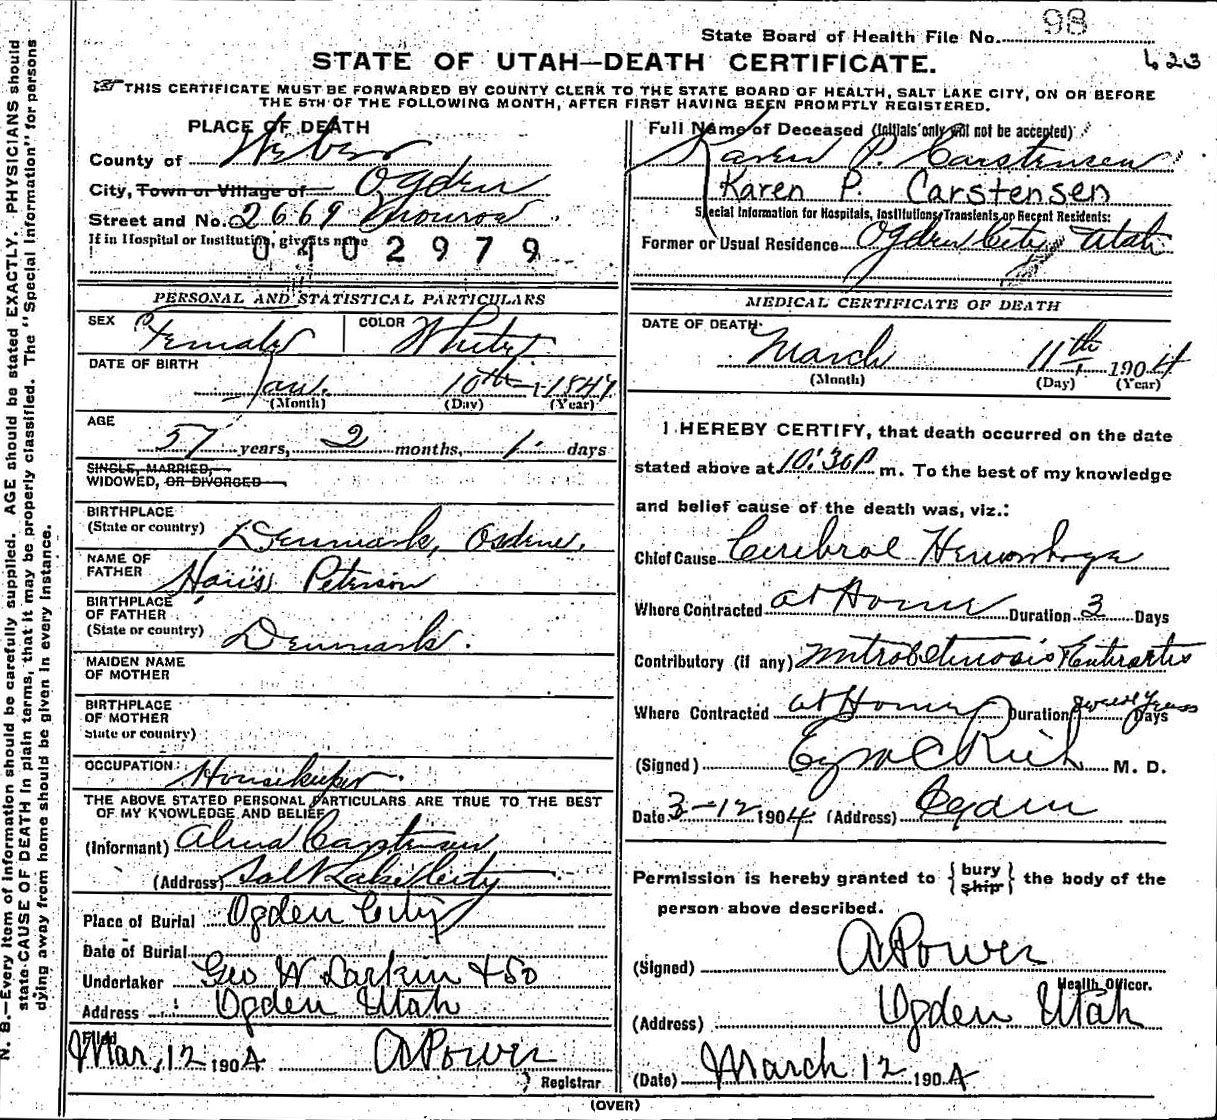 State Board of Health File No. 98
623
STATE OF UTAH—DEATH CERTIFICATE.
☞ THIS CERTIFICATE MUST BE FORWARDED BY COUNTY CLERK TO THE STATE BOARD OF HEALTH, SALT LAKE CITY, ON OR BEFORE
THE 5TH OF THE FOLLOWING MONTH, AFTER FIRST HAVING BEEN PROMPTLY REGISTERED.
N. B.—Every item of information should be carefully supplied. AGE should be stated EXACTLY. PHYSICIANS should
state CAUSE OF DEATH in plain terms, that it may be properly classified. The "Special Information" for persons
dying away from home should be given in every instance.
PLACE OF DEATH
County of Weber
City, Town or Village of Ogden
Street and No. 2669 Monroe
If in Hospital or Institution, give its name
0402979
PERSONAL AND STATISTICAL PARTICULARS
SEX Female COLOR White
DATE OF BIRTH
Jan. 10th 1847
(Month) (Day) (Year)
AGE
57 years, 2 months, 1 days
SINGLE, MARRIED,
WIDOWED, OR DIVORCED
BIRTHPLACE
(State or country) Denmark,
NAME OF
FATHER Peterson
BIRTHPLACE
OF FATHER
(State or country) Denmark.
MAIDEN NAME
OF MOTHER
BIRTHPLACE
OF MOTHER
State or country)
OCCUPATION Housekeeper
THE ABOVE STATED PERSONAL PARTICULARS ARE TRUE TO THE BEST
OF MY KNOWLEDGE AND BELIEF
(Informant) Alma Carstensen
(Address) Salt Lake City
Place of Burial Ogden City
Date of Burial
Undertaker Geo W Larkin & So
Address Ogden Utah
Filed
Mar, 12 1904 A Power
Registrar
Full Name of Deceased (Initials only will not be accepted)
Karen P. Carstensen
Karen P. Carstensen
Special Information for Hospitals, Institutions, Transients or Recent Residents:
Former or Usual Residence Ogden City Utah
MEDICAL CERTIFICATE OF DEATH
DATE OF DEATH
March 11th 1904
(Month) (Day) (Year)
I HEREBY CERTIFY, that death occurred on the date
stated above at 10:30 P m. To the best of my knowledge
and belief cause of the death was, viz.:
Chief Cause Cerebral Hemorrhage
Where Contracted at Home Duration 3 Days
Contributory (if any)
Where Contracted at Home Duration Years Days
(Signed) Rich M. D.
Date 3-12 1904 (Address) Ogden
Permission is hereby granted to {bury ship} the body of the
person above described.
(Signed) A Power
Health Officer.
(Address) Ogden Utah
(Date) March 12 1904
(OVER)